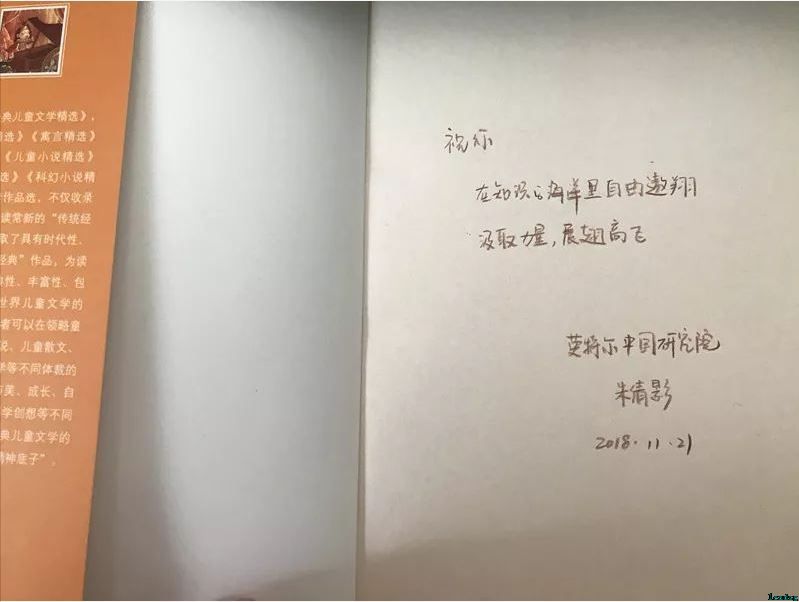 典儿童文学精选》,
精选》《寓言精选》
《儿童小说精选》
选》《科幻小说精
作品选,不仅收录
读常新的“传统经
取了具有时代性、
经典”作品,为读
性、丰富性、包
世界儿童文学的
者可以在领略童
说、儿童散文、
等不同体裁的
笑、成长、自
学创想等不同
典儿童文学的
精神底子”。
祝你
在知识的海洋里自由遨翔
汲取力量,展翅高飞
英特尔中国研究院
朱倩影
2018.11.21